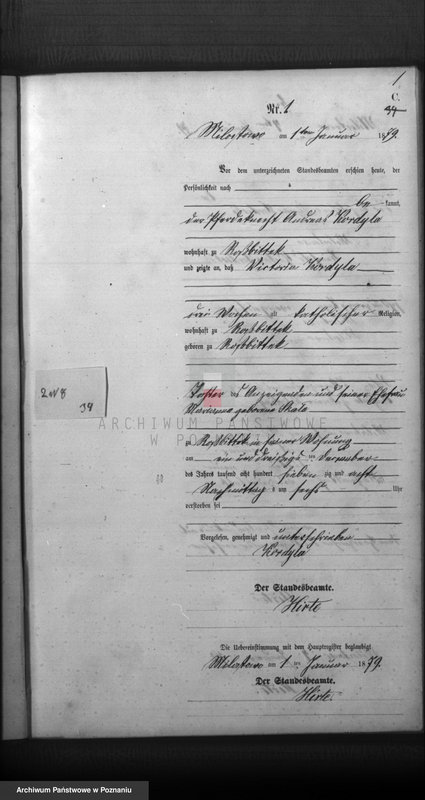 1
C.
Nr. 1
Milostowo am 1ten Januar 1879.
Vor dem unterzeichneten Standesbeamten erschien heute, der
Persönlichkeit nach
be kannt,
der Pferdeknecht Andreas Kordyla
wohnhaft zu Roßbittek
und zeigte an, daß Victoria Kordyla
drei Wochen alt katholischer Religion,
wohnhaft zu Roßbittek
geboren zu Roßbittek
Tochter des Anzeigenden und seiner Ehefrau
Marianna geborene Skala
zu Roßbittek in seiner Wohnung
am ein und dreißigs ten Dezember
des Jahrs tausend acht hundert sieben zig und acht
Nachmittag s um sechs Uhr
verstorben sei
Vorgelesen, genehmigt und unterschrieben
Kordyla
Der Standesbeamte.
Hirte
Die Uebereinstimmung mit dem Hauptregister beglaubigt
Milostowo am 1 ten Januar 1879.
Der Standesbeamte.
Hirte.
34
ARCHIWUM PAŃSTWOWE
W PO
Archiwum Państwowe w Poznaniu